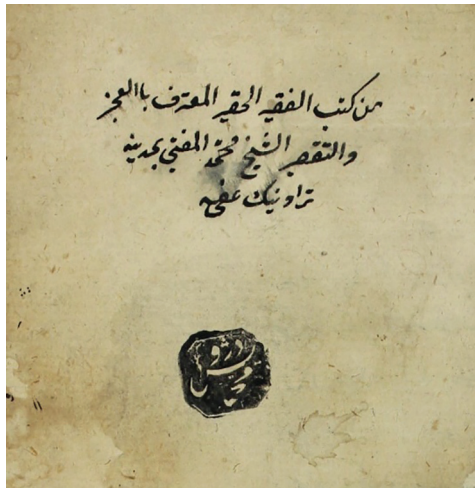 من كتب الفقير الحقير المعترف باالعجز
والتقصير الشيخ محمد المفتي بمدينه
تراونيك عفي